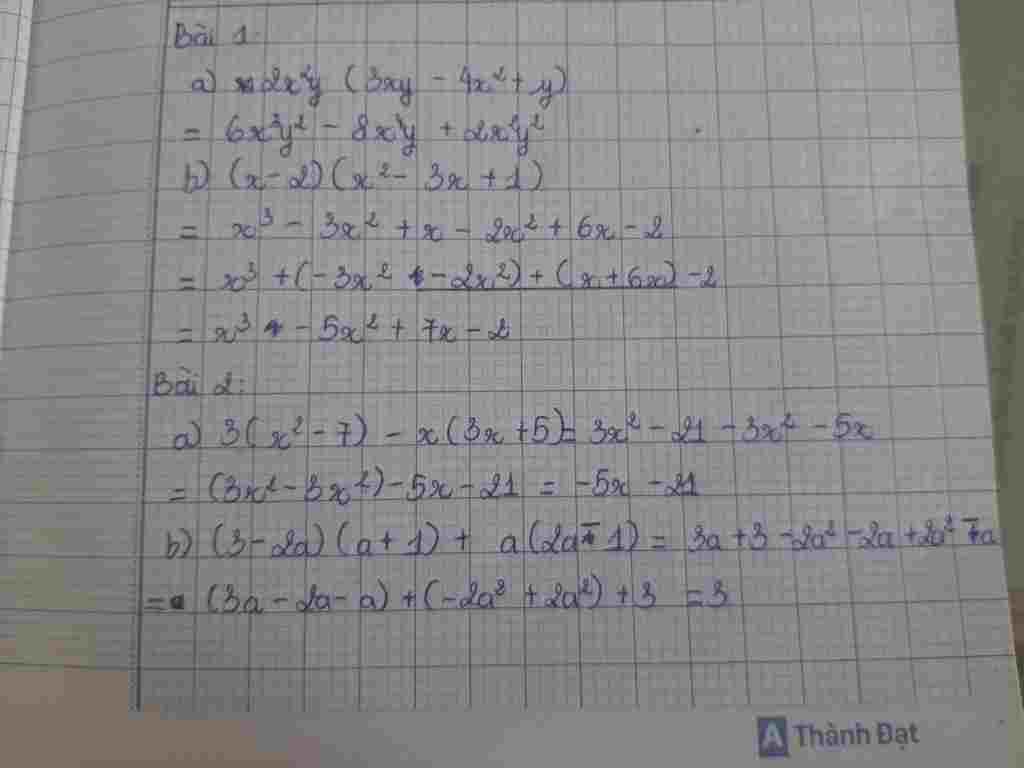 Bài 1:
a) 2x²y (3xy - 4x² + y)
= 6x³y² - 8x⁴y + 2x²y²
b) (x-2)(x² - 3x + 1)
= x³ - 3x² + x - 2x² + 6x - 2
= x³ + (-3x² - 2x²) + (x + 6x) - 2
= x³ - 5x² + 7x - 2
Bài 2:
a) 3(x² - 7) - x(3x + 5) = 3x² - 21 - 3x² - 5x
= (3x² - 3x²) - 5x - 21 = -5x - 21
b) (3 - 2a)(a + 1) + a(2a - 1) = 3a + 3 - 2a² - 2a + 2a² - a
= (3a - 2a - a) + (-2a² + 2a²) + 3 = 3
A Thành Đạt